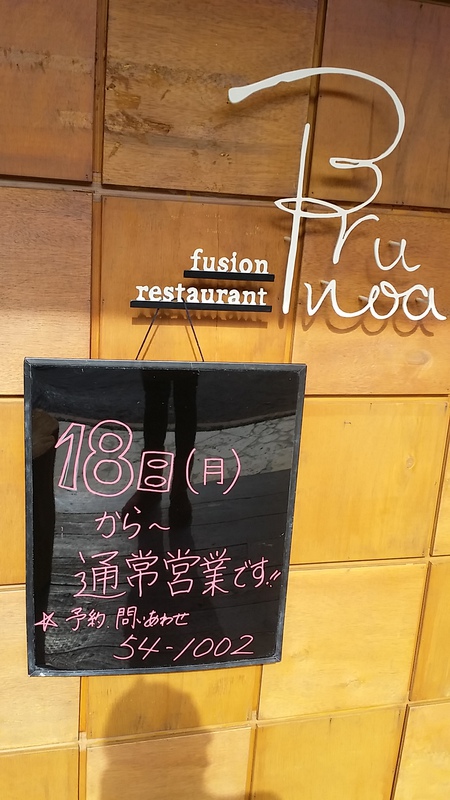 Bru
noa
fusion
restaurant
18日(月)
から〜
通常営業です!!
☆予約.問い合わせ
54-1002